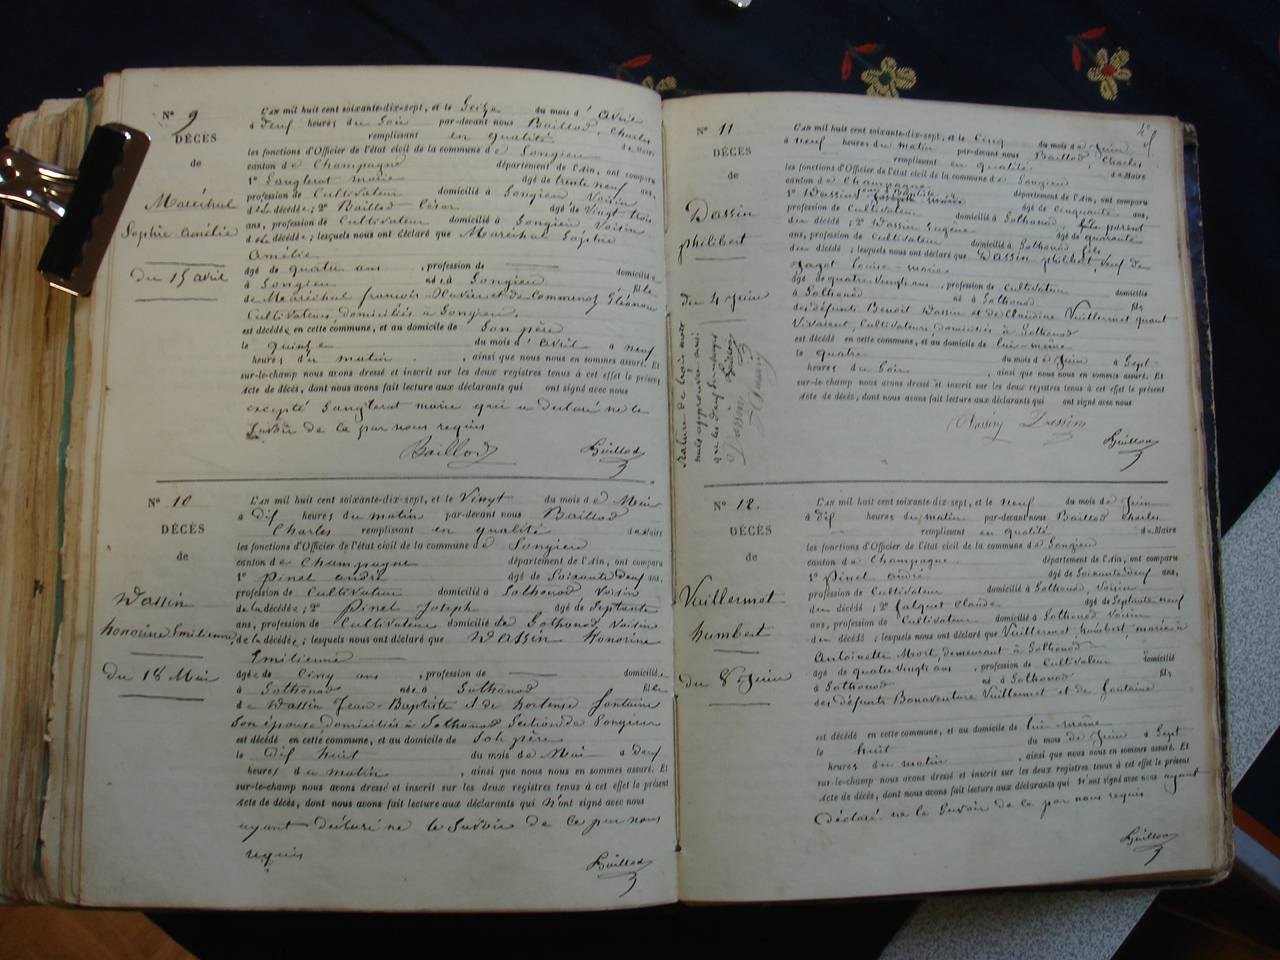 N° 9
DÉCÈS
de
Maréchal
Sophie Amélie
du 15 avril
L'AN mil huit cent soixante-dix-sept, et le Seize du mois d'avril
à deux heures du Soir par-devant nous Baillod, Charles
remplissant en qualité de Maire
les fonctions d'Officier de l'état civil de la commune de Songieu
canton de Champagne département de l'Ain, ont comparu
1° Sanglerat marie âgé de trente neuf ans,
profession de Cultivateur domicilié à Songieu Voisin
de la décédée; 2° Baillod César âgé de Vingt trois
ans, profession de Cultivateur domicilié à Songieu Voisin
de la décédée; lesquels nous ont déclaré que Maréchal Sophie
Amélie
âgé de quatre ans, profession de domiciliée
à Songieu née à Songieu fille
de Maréchal françois Olivier et de Éléonore
Cultivateurs, domiciliés à Songieu.
est décédée en cette commune, et au domicile de Son père
le quinze du mois d'avril à neuf
heures du matin, ainsi que nous nous en sommes assuré. Et
sur-le-champ nous avons dressé et inscrit sur les deux registres tenus à cet effet le présent
acte de décès, dont nous avons fait lecture aux déclarants qui ont signé avec nous
excepté Sanglerat marie qui a déclaré ne le
Savoir de ce par nous requis
Baillod Baillod
N° 10
DÉCÈS
de
Dassin
honorine Emilienne
du 18 Mai
L'AN mil huit cent soixante-dix-sept, et le Vingt du mois de Mai
à dix heures du matin par-devant nous Baillod
Charles remplissant en qualité de Maire
les fonctions d'Officier de l'état civil de la commune de Songieu
canton de Champagne département de l'Ain, ont comparu
1° Pinet andré âgé de Soixante deux ans,
profession de Cultivateur domicilié à Sothonod Voisin
de la décédée; 2° Pinet Joseph âgé de Septante
ans, profession de Cultivateur domicilié de Sothonod, Voisin
de la décédée; lesquels nous ont déclaré que Dassin honorine
Emilienne
âgée de Cinq ans, profession de domiciliée
à Sothonod née à Sothonod fille
de Dassin Jean-Baptiste et de hortense fontaine
Son épouse domiciliés à Sothonod Section de Songieu
est décédé en cette commune, et au domicile de Son père
le dix huit du mois de Mai à deux
heures du matin, ainsi que nous nous en sommes assuré. Et
sur-le-champ nous avons dressé et inscrit sur les deux registres tenus à cet effet le présent
acte de décès, dont nous avons fait lecture aux déclarants qui n'ont signé avec nous
ayant déclaré ne le Savoir de ce par nous
requis
Baillod
N° 11
DÉCÈS
de
Dassin
philibert
du 4 Juin
L'AN mil huit cent soixante-dix-sept, et le Cinq du mois de Juin
à neuf heures du matin par-devant nous Baillod, Charles
remplissant en qualité de Maire
les fonctions d'Officier de l'état civil de la commune de Songieu
canton de Champagne département de l'Ain, ont comparu
1° Dassin Jean Baptiste âgé de Cinquante ans,
profession de Cultivateur domicilié à Sothonod, parent
du décédé; 2° Dassin Eugène âgé de quarante
ans, profession de Cultivateur domicilié à Sothonod fils
du décédé; lesquels nous ont déclaré que Dassin philibert veuf de
Jagot Louise marie
âgé de quatre Vingts ans, profession de Cultivateur domicilié
à Sothonod né à Sothonod fils
des défunts Benoit Dassin et de Claudine Vuillermet quant
Vivaient, Cultivateurs domiciliés à Sothonod
est décédé en cette commune, et au domicile de lui-même
le quatre du mois de Juin à Sept
heures du Soir, ainsi que nous nous en sommes assuré. Et
sur-le-champ nous avons dressé et inscrit sur les deux registres tenus à cet effet le présent
acte de décès, dont nous avons fait lecture aux déclarants qui ont signé avec nous
Rature de trois mots
nuls approuvée ainsi
que les deux Surcharges
Baillod
Dassin Dassin
Dassin Dassin
Baillod
N° 12.
DÉCÈS
de
Vuillermet
humbert
du 8 Juin
L'AN mil huit cent soixante-dix-sept, et le neuf du mois de Juin
à dix heures du matin par-devant nous Baillod Charles
remplissant en qualité de Maire
les fonctions d'Officier de l'état civil de la commune de Songieu
canton de Champagne département de l'Ain, ont comparu
1° Pinet andré âgé de Soixante deux ans,
profession de Cultivateur domicilié à Sothonod, Voisin
du décédé; 2° Jalquet Claude âgé de Septante neuf
ans, profession de Cultivateur domicilié à Sothonod Voisin
du décédé; lesquels nous ont déclaré que Vuillermet, humbert, marié à
Antoinette Mort, demeurant à Sothonod
âgé de quatre Vingts ans, profession de Cultivateur domicilié
à Sothonod né à Sothonod fils
des défunts Bonaventure Vuillermet et de fontaine
est décédé en cette commune, et au domicile de lui même
le huit du mois de Juin à Sept
heures du matin, ainsi que nous nous en sommes assuré. Et
sur-le-champ nous avons dressé et inscrit sur les deux registres tenus à cet effet le présent
acte de décès, dont nous avons fait lecture aux déclarants qui n'ont signé avec nous ayant
déclaré ne le Savoir de ce par nous requis
Baillod